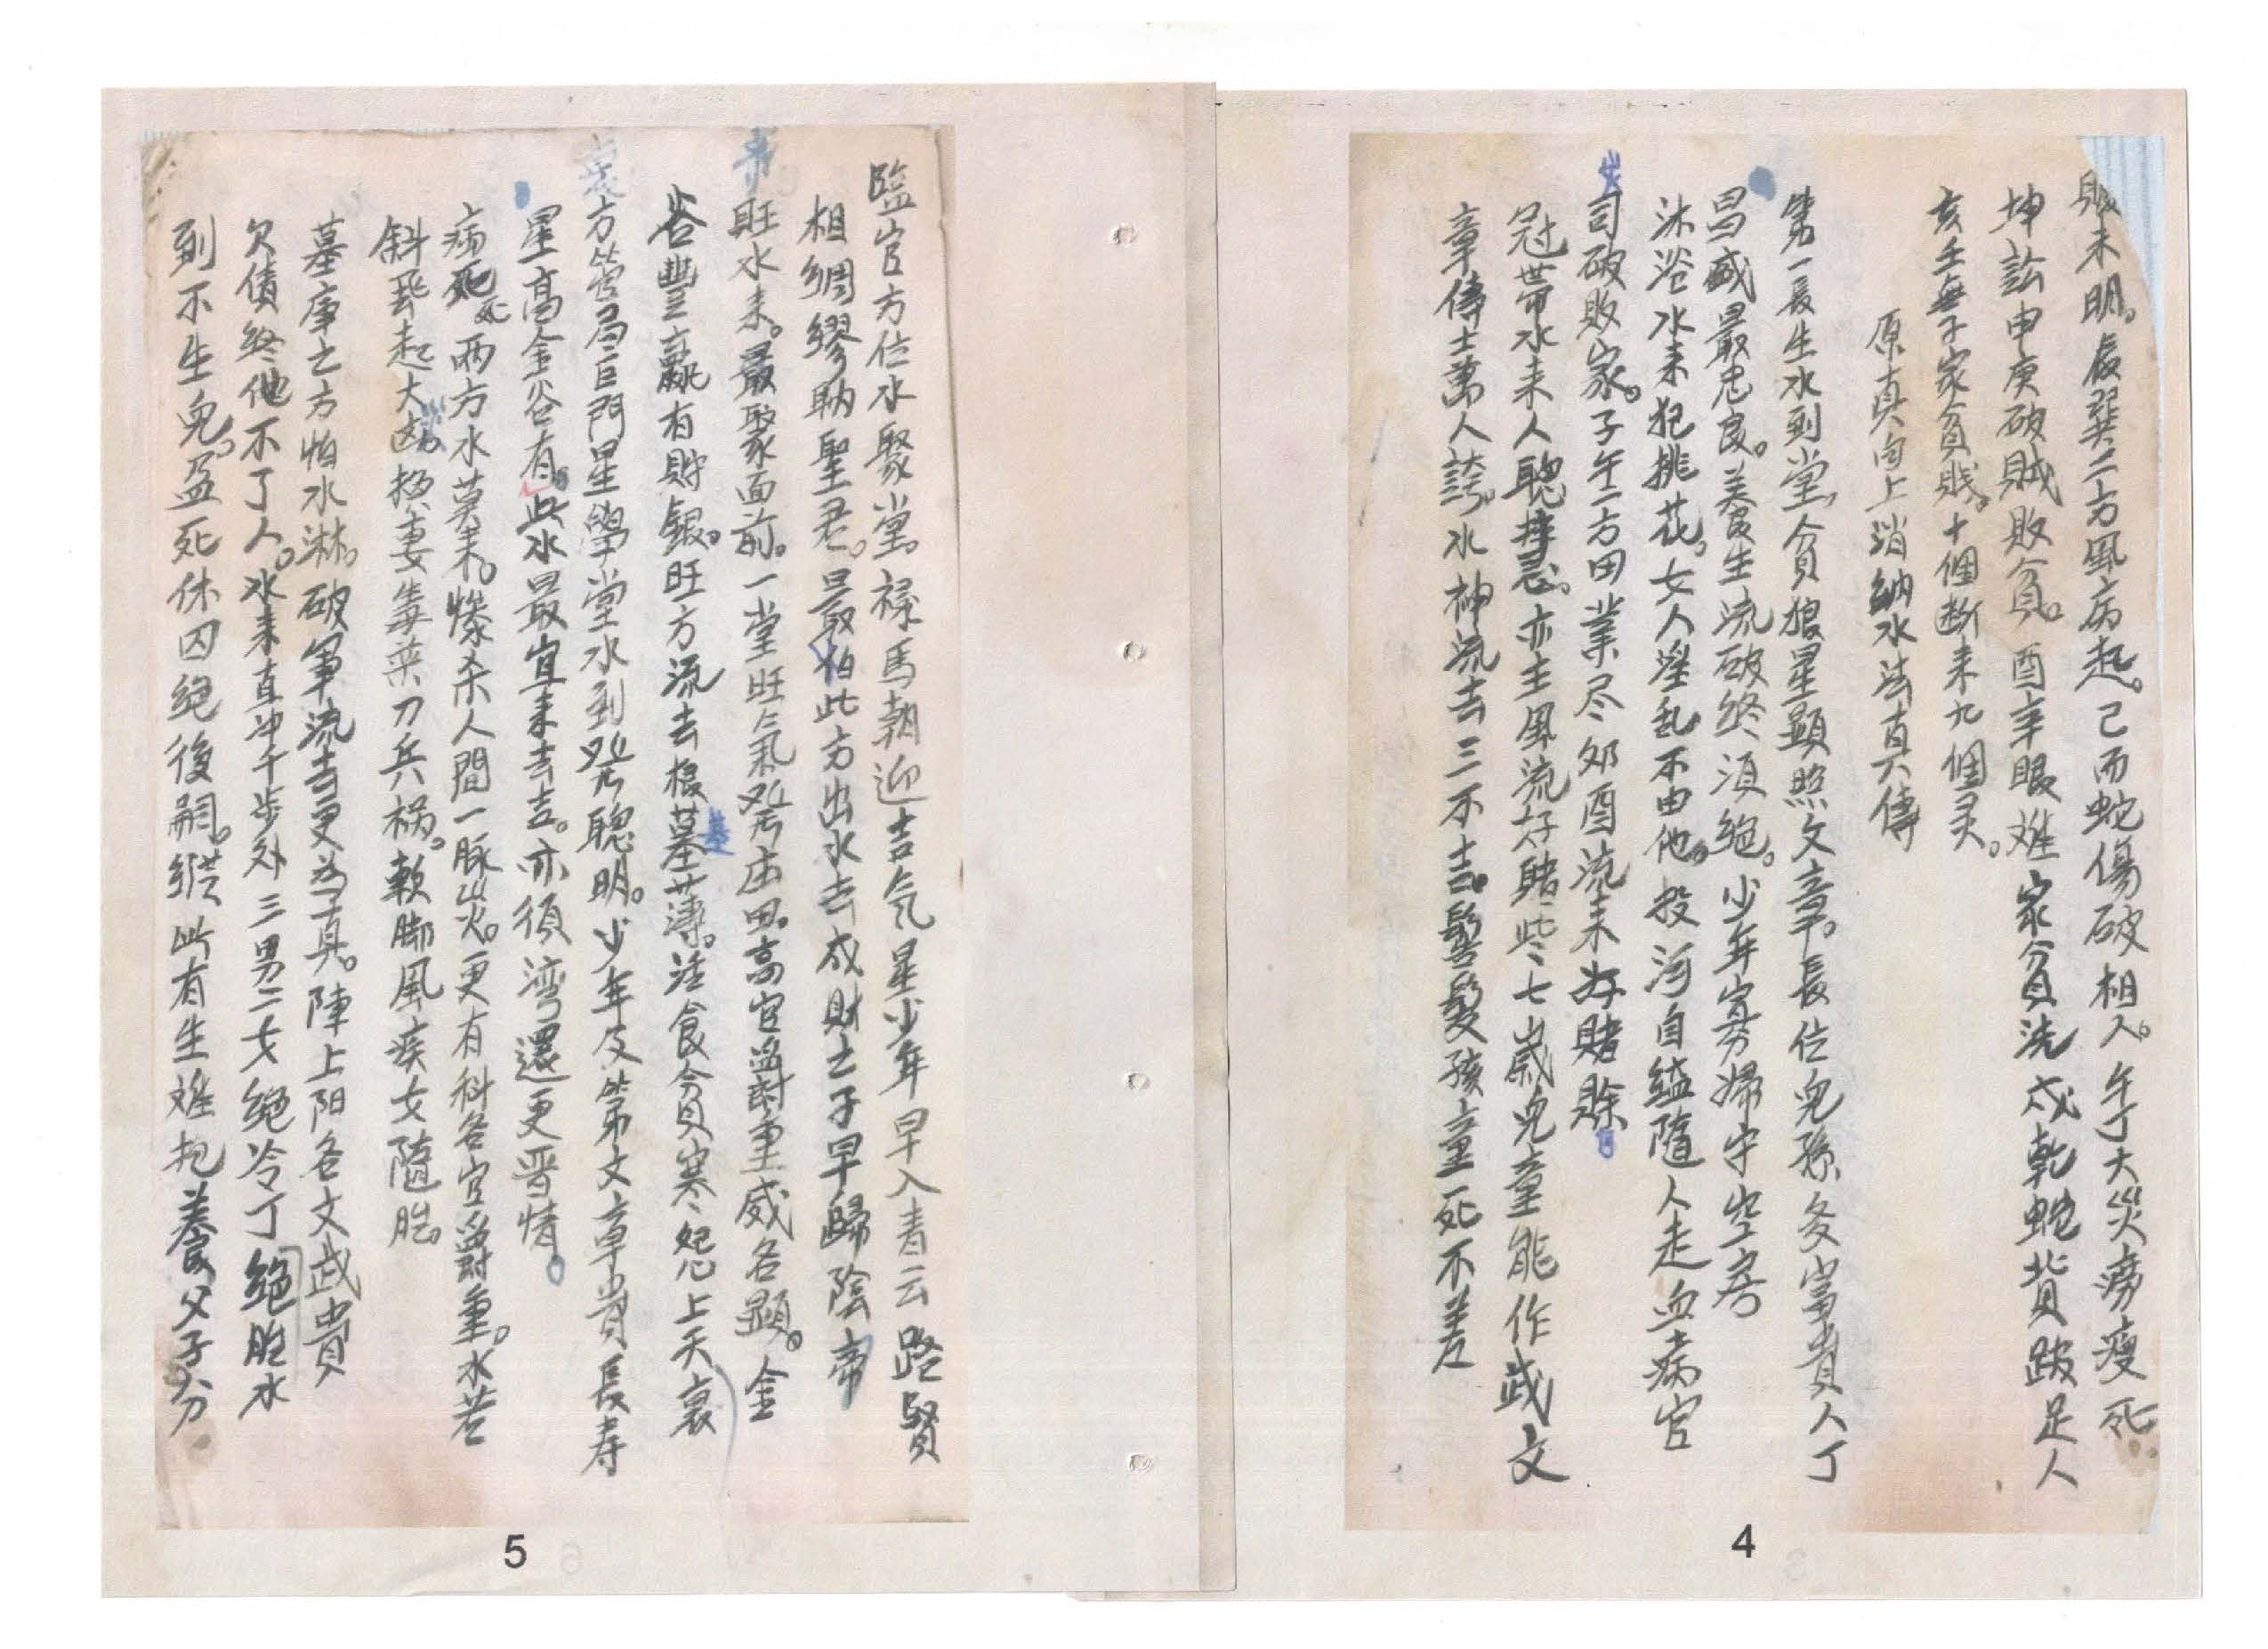 眼未明。辰巽二方風病起。已而蛇傷破相人。午丁大災癆瘦死
坤訟申庚破賊敗貧。酉辛眼难家貧洗成乾蛇背跛足人
亥壬無子家貧賎。十個断来九個灵。
原真向上消納水法真傳
第一長生水到堂，貪狼星顕照文章。長位兒孫多富貴人丁
昌盛最忠良。養生流破终須絶。少年寡婦守空房
沐浴水来犯桃花。女人淫乱不由他。投河自缢隨人走血病官
災
司破敗家。子午二方田業尽卯酉流来好賭賒
冠带水来人聰 。亦主風流好賭些七歲兒童能作武文
章傳士萬人誇。水神流去三不吉。 髮孩童死不差
4
臨官方位水聚堂。禄馬朝迎吉气星少年早入青云路賢
相绸缪 聖君。最怕此方出水去成財士子早歸陰帝
帝
旺水来。最聚面前。一堂旺氣発庄田。高官爵重威名顕。金
谷豐 有財銀。旺方流去根基薄。 食貪寒怨上天衰
墓
衰
方 局巨門星學堂水到発聰明。少年及第文章貴長寿
星高金谷有。此水最宜来去吉。亦須湾還更晋情。
病死
死
兩方水莫来。惨杀人間一脉災。更有科名官爵重。水若
斜飛起大 損妻毒葉刀兵祸。軟脚風疾女隨胎。
墓库之方怕水淋。破軍流去更为真。陣上阳名文武貴
欠債终他不了人。水来直冲千步外三男二女絶冷丁絶胎水
到不生兒。孟死休囚絶後嗣。縱此有生难抱養父子分
5